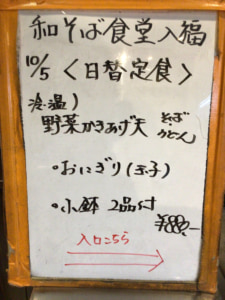 和そば食堂入福
10/5 〈日替定食〉
冷・温)
野菜かきあげ天 そば うどん
・おにぎり(玉子)
・小鉢 2品付
¥880,-
入口こちら